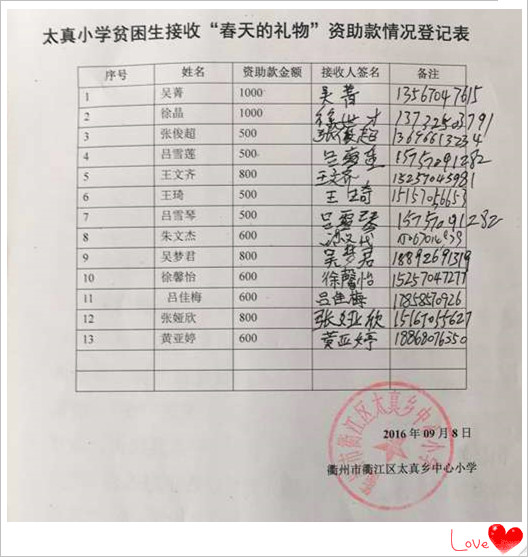 太真小学贫困生接收“春天的礼物”资助款情况登记表
序号 姓名 资助款金额 接收人签名 备注
1 吴菁 1000 吴菁 13567047615
2 徐晶 1000 13732503791
3 张俊超 500 张俊超
4 吕雪莲 500 吕雪莲 15757091282
5 王文齐 800 王文齐 15257045981
6 王琦 500 王琦 15157056653
7 吕雪琴 500 吕雪琴 15757091282
8 朱文杰 600
9 吴梦君 800 吴梦君 18892691319
10 徐馨怡 600 徐馨怡 15257047277
11 吕佳梅 600 吕佳梅 1785870926
12 张娅欣 800 张娅欣 15167055627
13 黄亚婷 600 黄亚婷 18868076350
2016 年 09 月 8 日
衢州市衢江区太真乡中心小学
市衢江区太真乡中心小学
Love